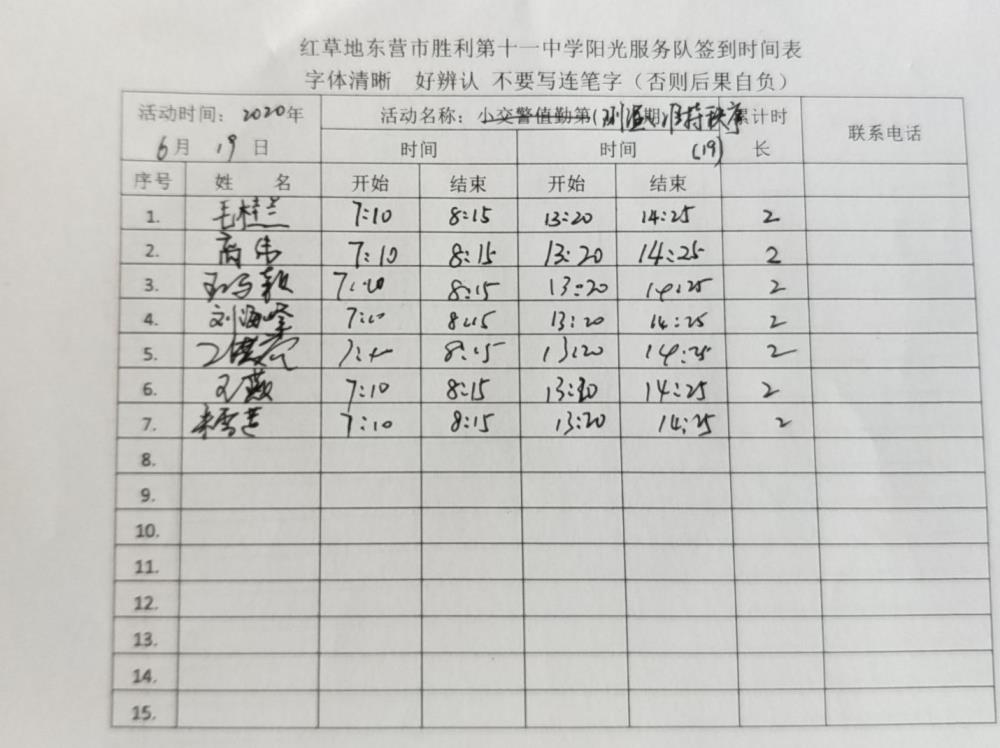 红草地东营市胜利第十一中学阳光服务队签到时间表
字体清晰 好辨认 不要写连笔字（否则后果自负）
活动时间：2020年 6月19日 活动名称：小交警值勤第(测温期)维持秩序(19) 累计时长 联系电话
时间 时间
序号 姓 名 开始 结束 开始 结束
1. 毛桂兰 7:10 8:15 13:20 14:25 2
2. 高伟 7:10 8:15 13:20 14:25 2
3. 7:10 8:15 13:20 14:25 2
4. 刘海峰 7:10 8:15 13:20 14:25 2
5. 7:10 8:15 13:20 14:25 2
6. 王燕 7:10 8:15 13:20 14:25 2
7. 7:10 8:15 13:20 14:25 2
8.
9.
10.
11.
12.
13.
14.
15.